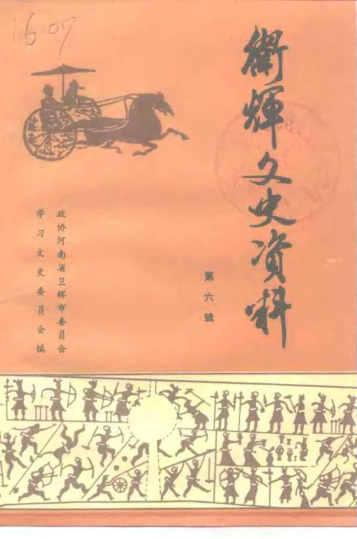 1607
衛輝文史资料
第六辑
政协河南省卫辉市委员会
学习文史委员会编